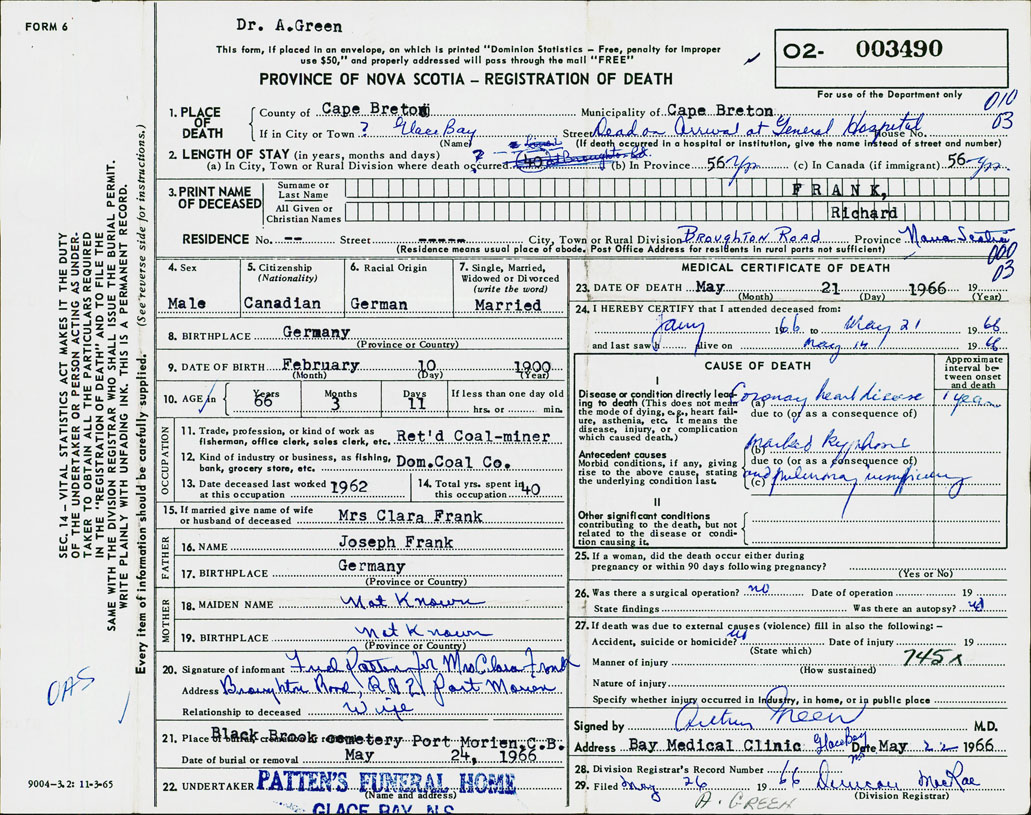 FORM 6
Dr. A.Green
This form, if placed in an envelope, on which is printed "Dominion Statistics – Free, penalty for improper
use $50," and properly addressed will pass through the mail "FREE"
PROVINCE OF NOVA SCOTIA – REGISTRATION OF DEATH
02- 003490
For use of the Department only
010
03
1. PLACE OF DEATH
County of Cape Breton Municipality of Cape Breton
If in City or Town ? Glace Bay Street Dead on Arrival at General Hospital House No.
(Name) (If death occurred in a hospital or institution, give the name instead of street and number)
2. LENGTH OF STAY (in years, months and days)
(a) In City, Town or Rural Division where death occurred ? (b) In Province 56 yrs (c) In Canada (if immigrant) 56 yrs.
3. PRINT NAME OF DECEASED
Surname or Last Name FRANK,
All Given or Christian Names Richard
RESIDENCE No. -- Street ----- City, Town or Rural Division BROUGHTON ROAD Province Nova Scotia
(Residence means usual place of abode. Post Office Address for residents in rural parts not sufficient)
000
03
4. Sex
Male
5. Citizenship
(Nationality)
Canadian
6. Racial Origin
German
7. Single, Married,
Widowed or Divorced
(write the word)
Married
8. BIRTHPLACE Germany
(Province or Country)
9. DATE OF BIRTH February 10 1900
(Month) (Day) (Year)
10. AGE in Years Months Days If less than one day old
66 3 11 hrs. or min.
OCCUPATION
11. Trade, profession, or kind of work as
fisherman, office clerk, sales clerk, etc. Ret'd Coal-miner
12. Kind of industry or business, as fishing,
bank, grocery store, etc. Dom.Coal Co.
13. Date deceased last worked
at this occupation 1962
14. Total yrs. spent in
this occupation 40
15. If married give name of wife
or husband of deceased Mrs Clara Frank
FATHER
16. NAME Joseph Frank
17. BIRTHPLACE Germany
(Province or Country)
MOTHER
18. MAIDEN NAME Not Known
19. BIRTHPLACE Not Known
(Province or Country)
20. Signature of informant Fred Patten for Mrs Clara Frank
Address Broughton Road, R R 2, Port Morien
Relationship to deceased Wife
21. Place of burial, cremation or cemetery Black Brook Port Morien,C.B.
Date of burial or removal May 24, 1966
22. UNDERTAKER PATTEN'S FUNERAL HOME
(Name and address)
GLACE BAY, N.S.
MEDICAL CERTIFICATE OF DEATH
23. DATE OF DEATH May 21 1966 19
(Month) (Day) (Year)
24. I HEREBY CERTIFY that I attended deceased from:
Jany 1966 to May 21 1966
and last saw h alive on May 14 1966
CAUSE OF DEATH
Approximate
interval be-
tween onset
and death
I
Disease or condition directly lead-
ing to death (This does not mean
the mode of dying, e.g., heart fail-
ure, asthenia, etc. It means the
disease, injury, or complication
which caused death.)
(a) Coronary heart disease 1 year
due to (or as a consequence of)
Antecedent causes
Morbid conditions, if any, giving
rise to the above cause, stating
the underlying condition last.
(b) marked kyphosis
due to (or as a consequence of)
(c) and pulmonary insufficiency
II
Other significant conditions
contributing to the death, but not
related to the disease or condi-
tion causing it.
25. If a woman, did the death occur either during
pregnancy or within 90 days following pregnancy?
(Yes or No)
26. Was there a surgical operation? no Date of operation 19
State findings Was there an autopsy? no
27. If death was due to external causes (violence) fill in also the following: –
Accident, suicide or homicide? no Date of injury 19
(State which)
Manner of injury 745x
(How sustained)
Nature of injury
Specify whether injury occurred in Industry, in home, or in public place
Signed by Arthur Green M.D.
Address Bay Medical Clinic Glace Bay NS Date May 22 1966
28. Division Registrar's Record Number 66
29. Filed May 26 1966 Duncan MacRae
(Division Registrar)
A. GREEN
SEC. 14 – VITAL STATISTICS ACT MAKES IT THE DUTY
OF THE UNDERTAKER OR PERSON ACTING AS UNDER-
TAKER TO OBTAIN ALL THE PARTICULARS REQUIRED
IN THE "REGISTRATION OF DEATH" AND TO FILE THE
SAME WITH THE DIVISION REGISTRAR WHO SHALL ISSUE THE BURIAL PERMIT.
WRITE PLAINLY WITH UNFADING INK. THIS IS A PERMANENT RECORD.
Every item of information should be carefully supplied. (See reverse side for instructions.)
OAS
9004-3.2: 11-3-65